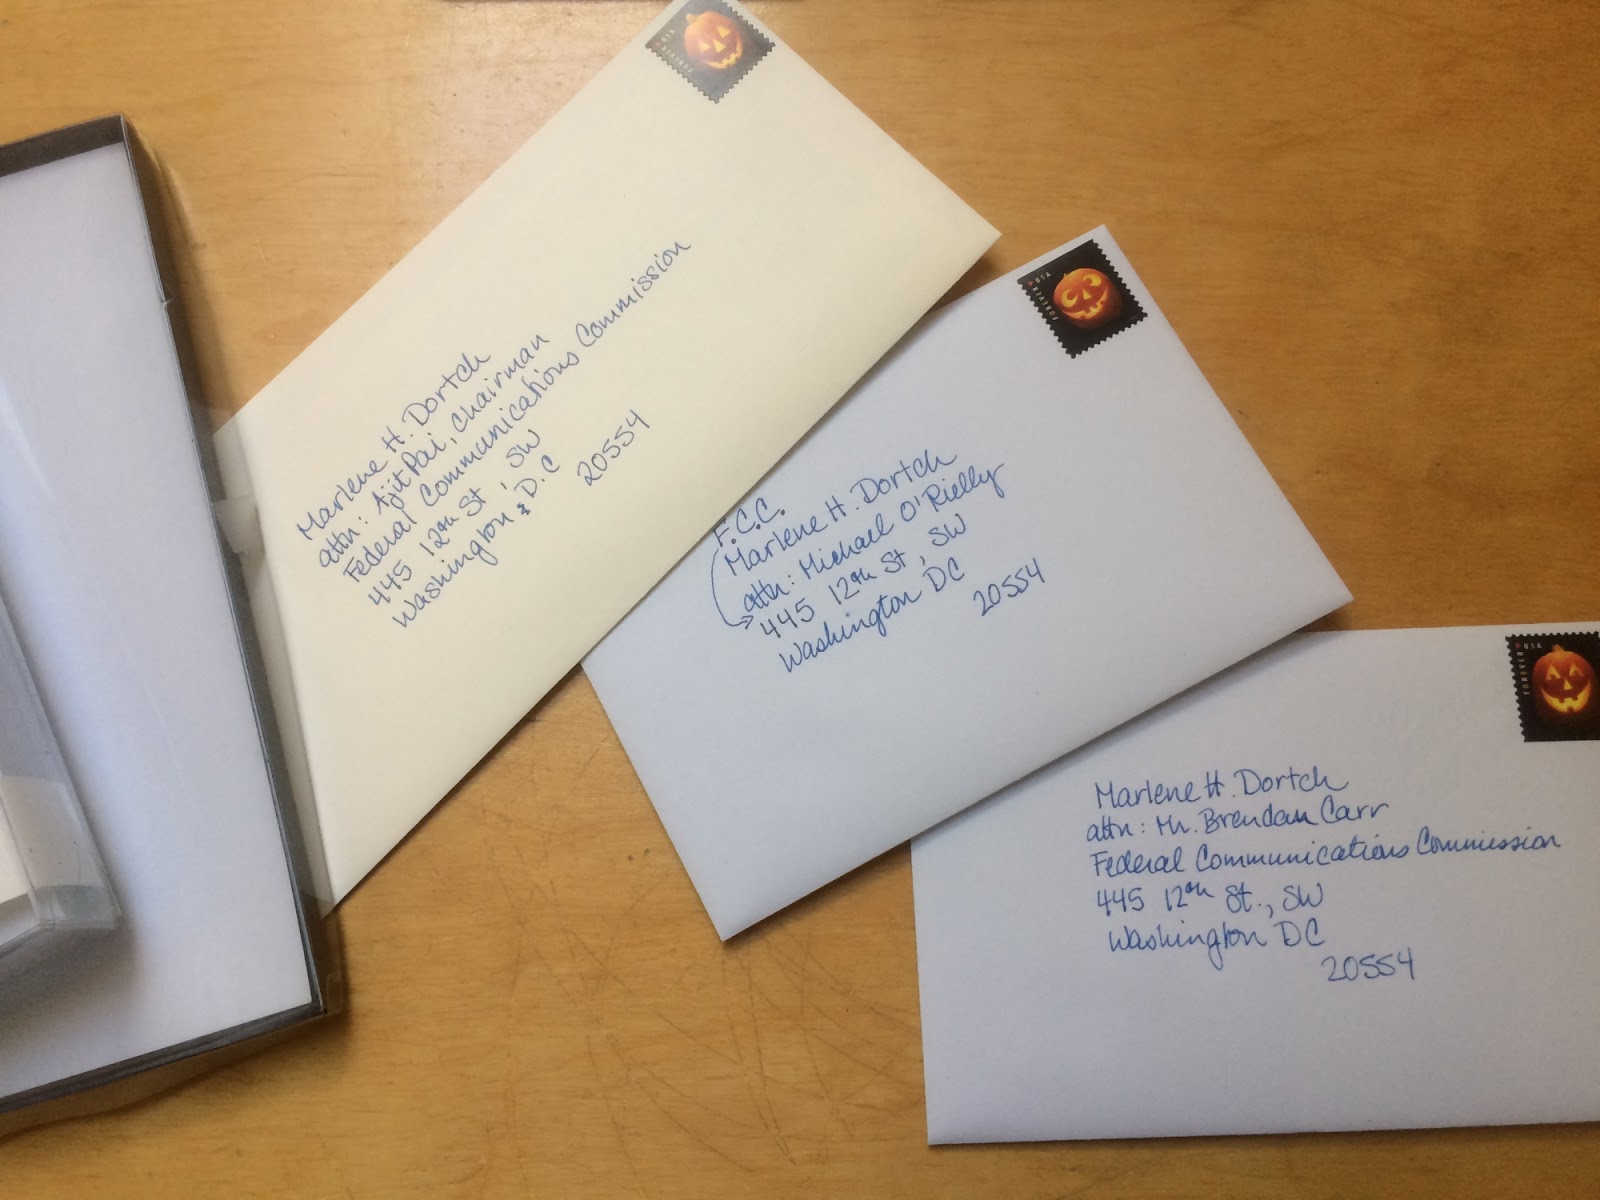 USA
FOREVER
Marlene H. Dortch
attn: Ajit Pai, Chairman
Federal Communications Commission
445 12th St, SW
Washington, D.C
20554
USA
FOREVER
F.C.C.
Marlene H. Dortch
attn: Michael O'Rielly
445 12th St, SW
Washington DC
20554
FOREVER USA
Marlene H. Dortch
attn: Mr. Brendan Carr
Federal Communications Commission
445 12th St., SW
Washington DC
20554